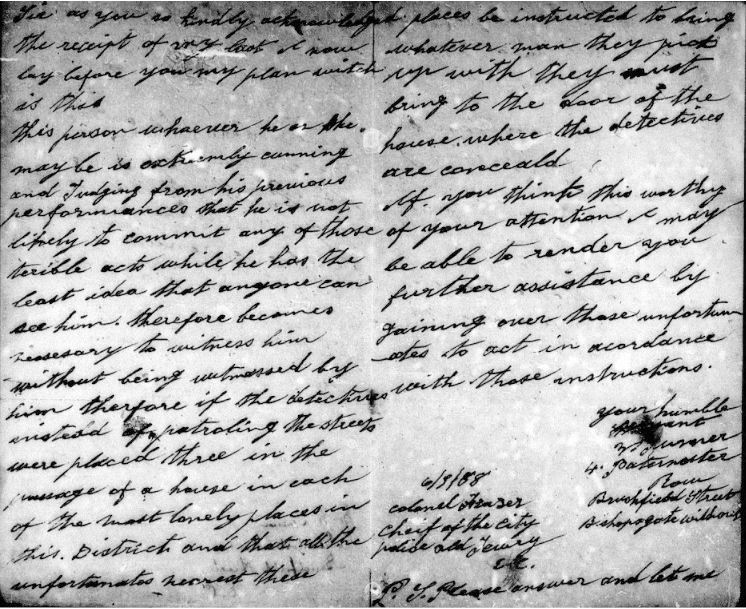 Sir as you so kindly acknowledged
the receipt of my last I now
lay before you my plan witch
is this
this person whoever he or she
may be is extremly cunning
and Judging from his previous
performances that he is not
likely to commit any of those
terible acts while he has the
least idea that anyone can
see him. therefore becomes
nessesary to witness him
without being witnessed by
him therfore if the detectives
instead of patroling the streets
were placed three in the
passage of a house in each
of the most lonely places in
this. District and that all the
unfortunates nearest these
places be instructed to bring
whatever man they pick
up with they must
bring to the door of the
house. where the detectives
are conceald
If. you think this worthy
of your attention I may
be able to render you
further assistance by
gaining over those unfortun
ates to act in acordance
with those instructions.
your humble
Servant
W Turner
4. Paternoster
Row
Brushfield Street
Bishopsgate without
6/9/88
colonel Frazer
cheif of the City
police old Jewry
E.C.
P. S. Please answer and let me